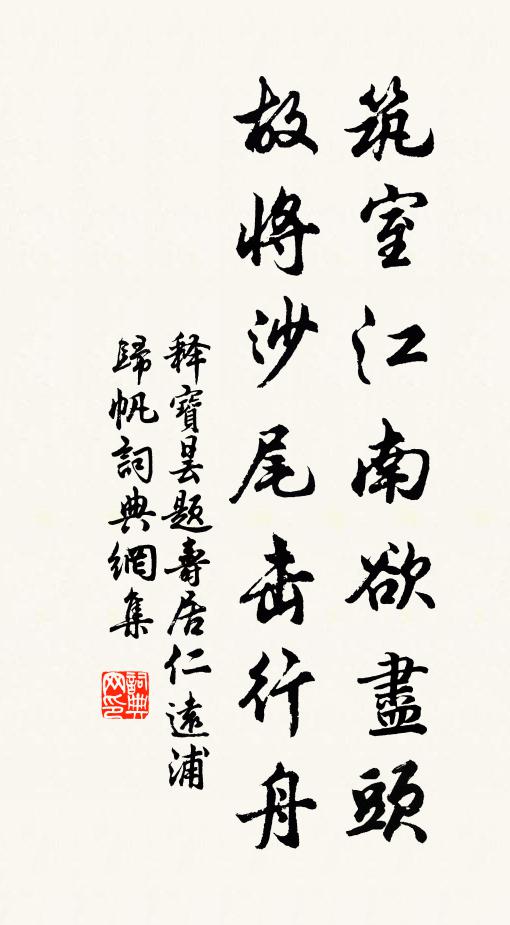 筑室江南欲盡頭
故將沙尾击行舟
释寶昙题壽居仁遠浦
歸帆詞典網集
詞典网印